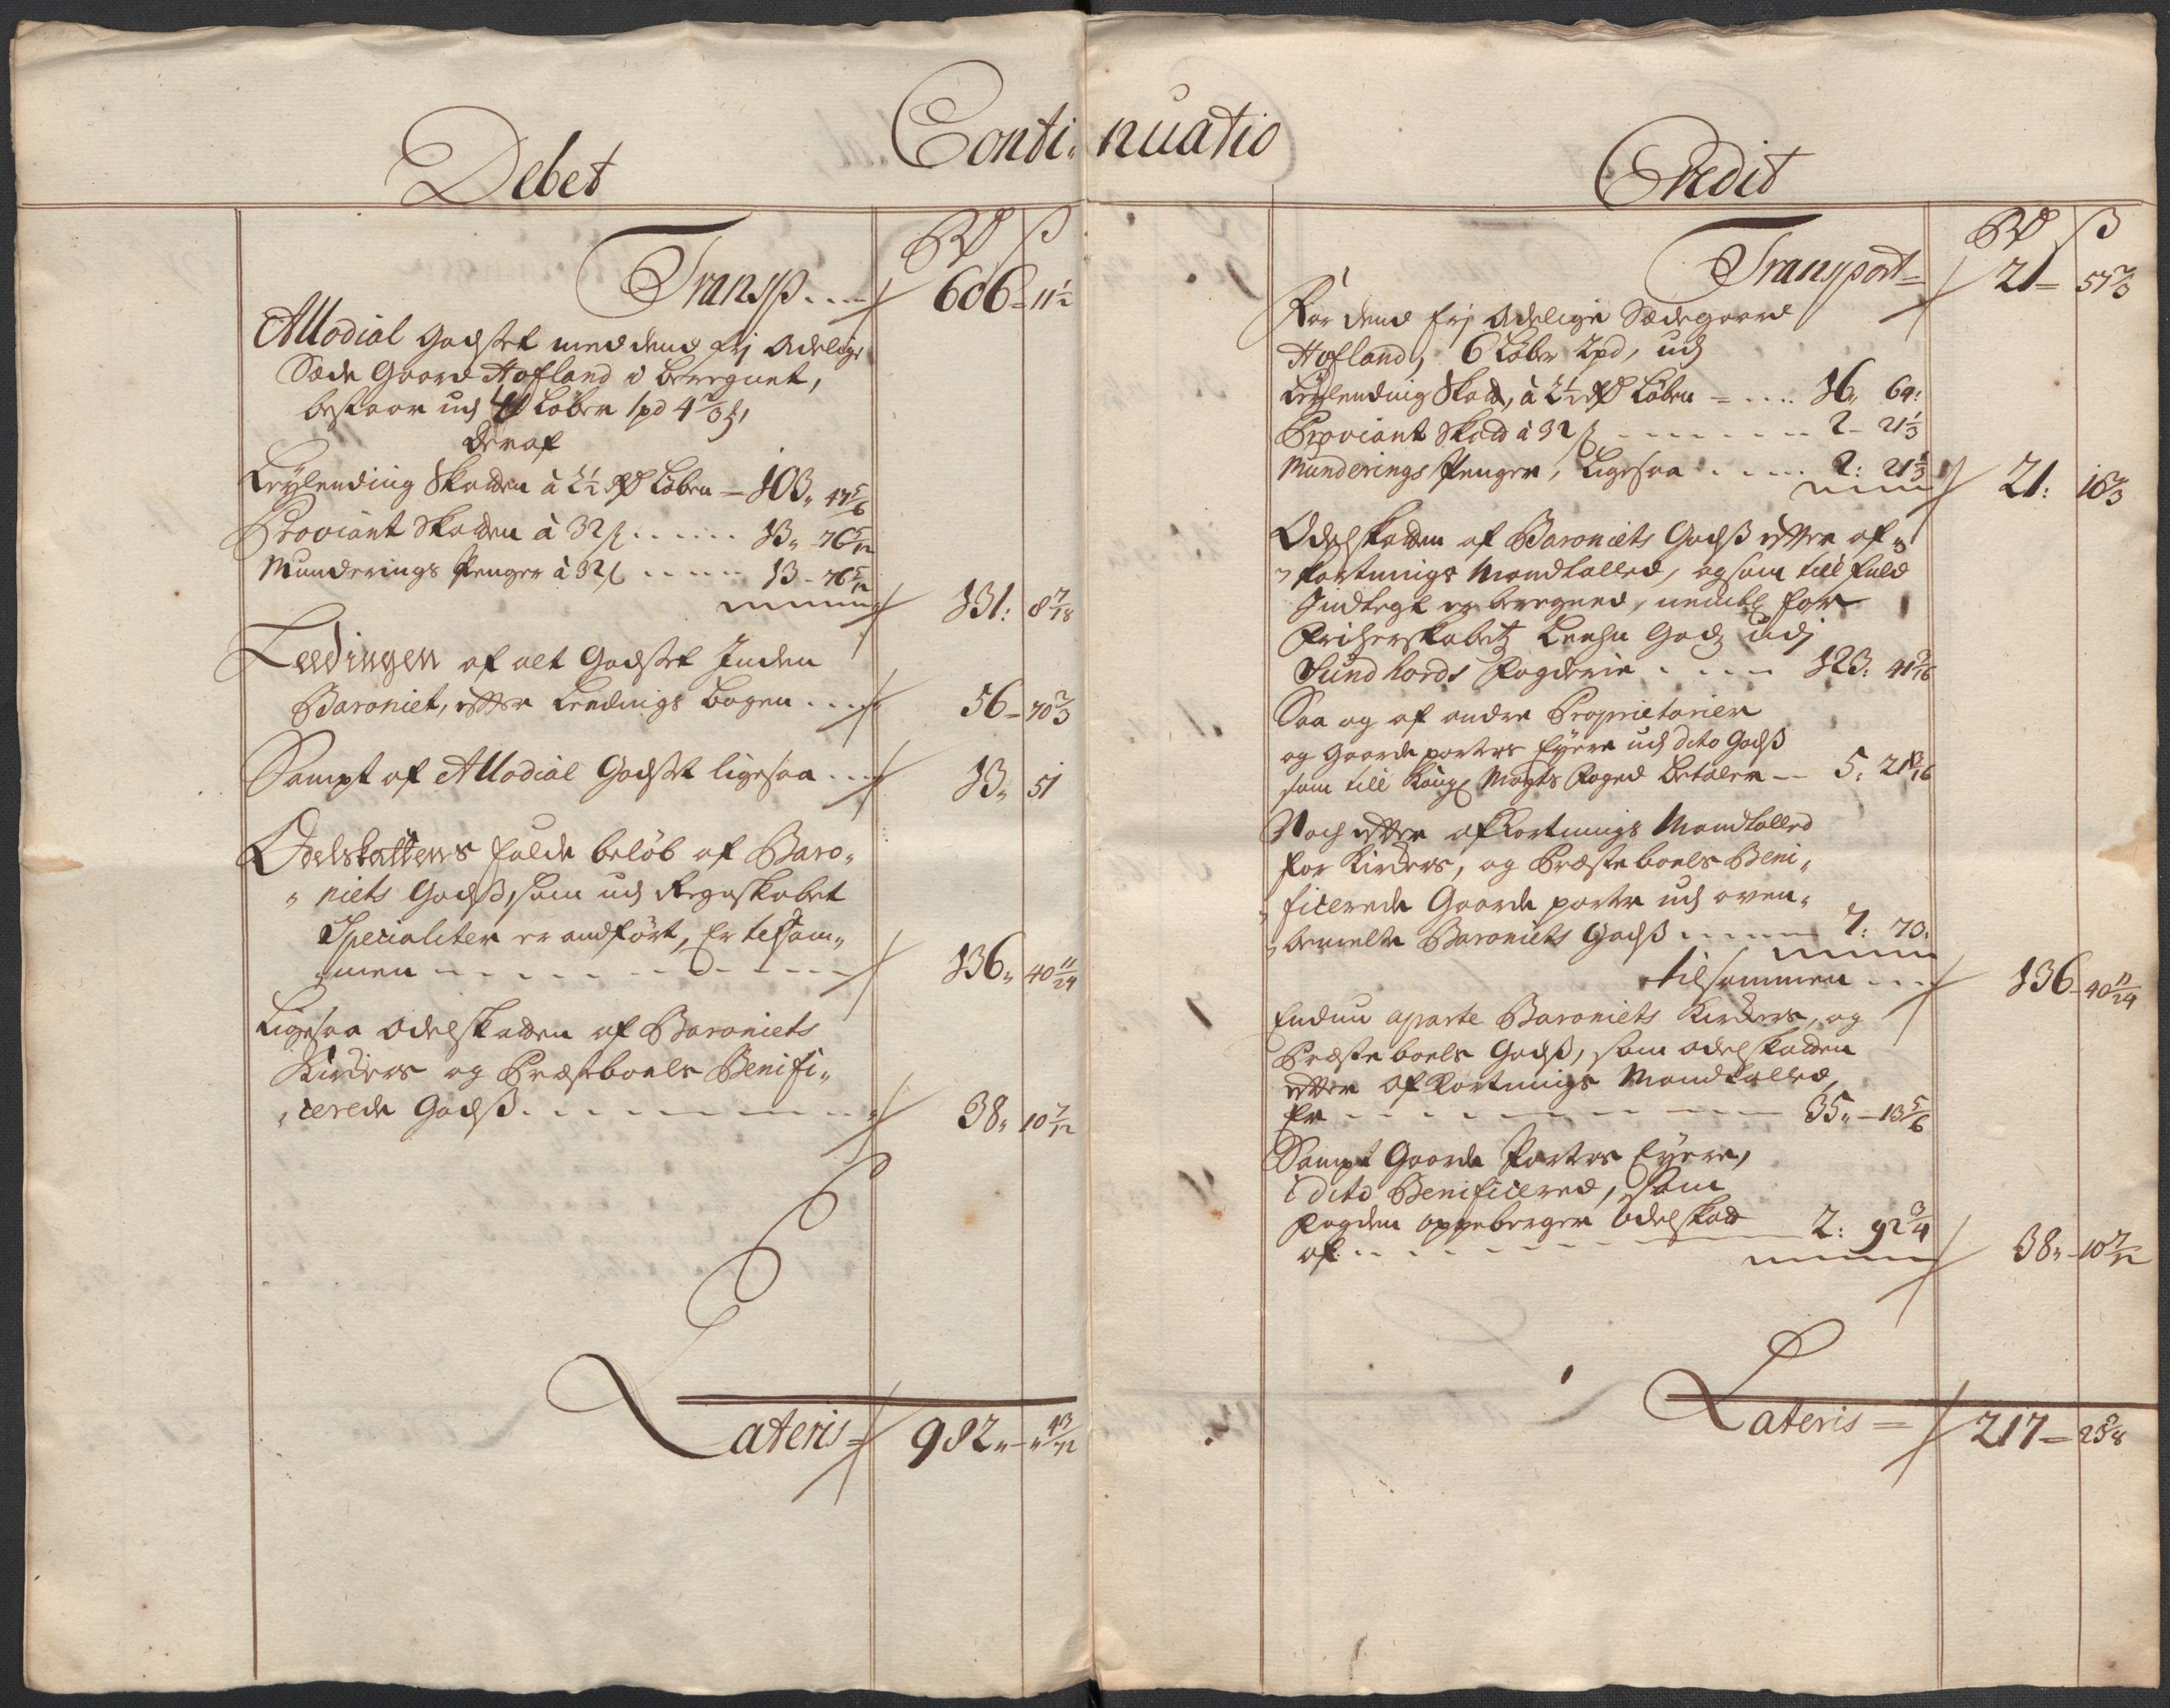 Conti„ nuatio
Debet
Rd ß
Transp. . . . 606 - 11 1/2
Allodial Godset med dend frj Adelige
Sæde Gaard Hofland i beregnet,
bestaar udj 41 Løber 1 pd 4 2/3 ß,
deraf
Leylending Skatten à 2 1/2 Rd Løben - 103„ 47 5/6
Proviant Skatten à 32 ß . . . . . . 13„ 76 5/12
Munderings Penger à 32 ß . . . . . 13 - 76 5/12
131: 8 7/18
Leedingen af alt Godset Inden
Baroniet, effter Leedings bogen . . . . 56 - 70 2/3
Sampt af Allodial Godset ligesaa . . . 13„ 51
Odelskattens fulde beløb af Baro„
„niets Godß, som udj Regnskabet
Specialiter er andført, Er tilsam„
„men - - - - - - - - - - 136„ 40 11/24
Ligesaa Odelskatten af Baroniets
Kirkers og Præsteboels Benifi„
„cerede Godß. - - - - - - - - 38„ 10 7/12
Lateris 982„ - „ 43/72
Credit
Rd ß
Transport 21 - 57 2/3
For dend frj Adelige Sædegaard
Hofland, 6 Løber 2 pd, udj
Leylending Skatt, à 2 1/2 Rd Løben - . . . . 16„ 64:
Proviant Skatt à 32 ß - - - - - - - 2 - 21 1/3
Munderings Penger, Ligesaa . . . . . 2: 21 1/3
21: 16 2/3
Odelskatten af Baroniets Godß effter af„
„kortnings Mandtalled, og som till fuld
Indtegt er beregned, nemlig for
Friherskabets Leehn Gods udj
Sundhords Fogderie . . - - 123: 41
Saa og af andre Proprietarier
og Gaardeparters Eyere udj dito Godß
som till Kongl Mayts Foged betaler - - 5: 21
Noch effter afkortnings Mandtalled
for Kirkers, og Præsteboels Beni„
„ficerede Gaarde parter udj oven„
„bemelte Baroniets Godß . - - - 7: 70:
tilsammen . . . 136 - 40 11/24
Endnu aparte Baroniets Kirkers, og
Præsteboels Godß, som odelskatten
effter Afkortnings Mandtalled,
Er - - - - - - - - - - 35„ - 13 5/6
Sampt Gaarde Parters Eyere,
i dito Benificered, som
Fogden oppeberger Odelskatt
af . - - - - - - - 2: 92 3/4
38„ - 10 7/12
Lateris = 217 - 29